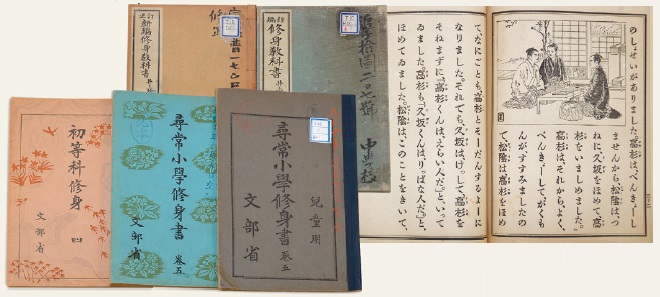 訂正
新編修身教科書
新編
修身教科書
初等科修身 四
文部省
尋常小學修身書 巻五
文部省
兒童用
尋常小學修身書 巻五
文部省
のし、せいがありました。高杉は、べんきょーし
ませんから、松陰は、つ
ねに久坂をほめて、高
杉をいましめました。
高杉は、それから、よく、
べんきょーして、がくも
んがすすみましたの
で、松陰は、高杉をほめ
て、なにごとも、高杉とそーだんするよーに
なりました。それでも、久坂は、けっして高杉を
そねまずに、「高杉くんは、えらい人だ」といって
ゐました。高杉も、「久坂くんは、りっぱな人だ」と、
ほめてゐました。松陰は、このことをきいて、